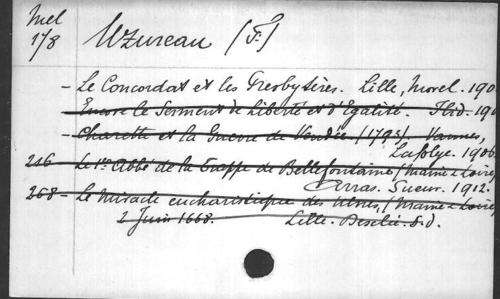 Mel
178
Uzureau (F.)
- Le Concordat et les Presbytères. Lille, Morel. 190
Encore le Serment de Liberté et d'Egalité. Ibid. 190
- Charette et la Guerre de Vendée (1793). Vannes,
Lafolye. 1906
216 - Le 1er Abbé de la Trappe de Bellefontaine (Maine & Loire)
Arras. Sueur. 1912.
268 - Le Miracle eucharistique des Ulmes, (Maine & Loire)
2 Juin 1668. Lille. S.d.